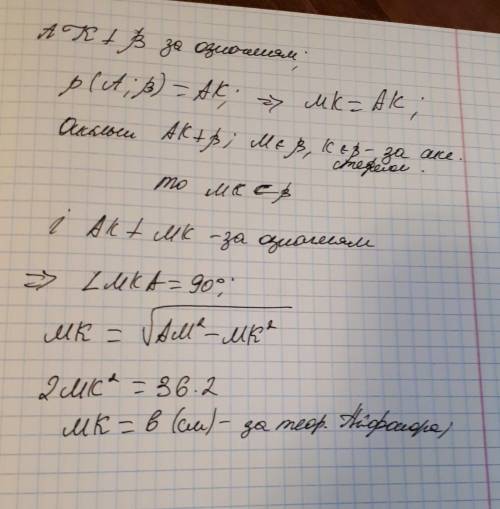 АК ⊥ β за означенням;
ρ(A; β) = AK; ⇒ MK = AK;
Оскільки AK ⊥ β; M ∈ β, K ∈ β - за акс.
стереом.
то MK ⊂ β
і AK ⊥ MK - за означенням
⇒ ∠MKA = 90°;
MK = √AM² - MK²
2MK² = 36·2
MK = 6 (см) - за теор. Піфагора)